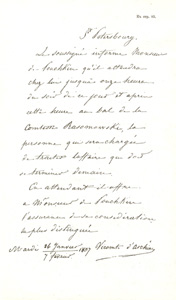 St Petersbourg.
Le soussigné informe Monsieur
de Pouchkine qu'il attendra
chez lui jusqu'à onze heures
du soir de ce jour et après
cette heure au bal de la
Comtesse Rasomovski, la
personne qui sera chargée
de traiter l'affaire qui doit
se terminer demain.
En attendant il offre
à Monsieur de Pouchkine
l'assurance de sa considération
la plus distinguée
Mardi 26 Janvier / 7 Février 1837 Vicomte d'Archiac